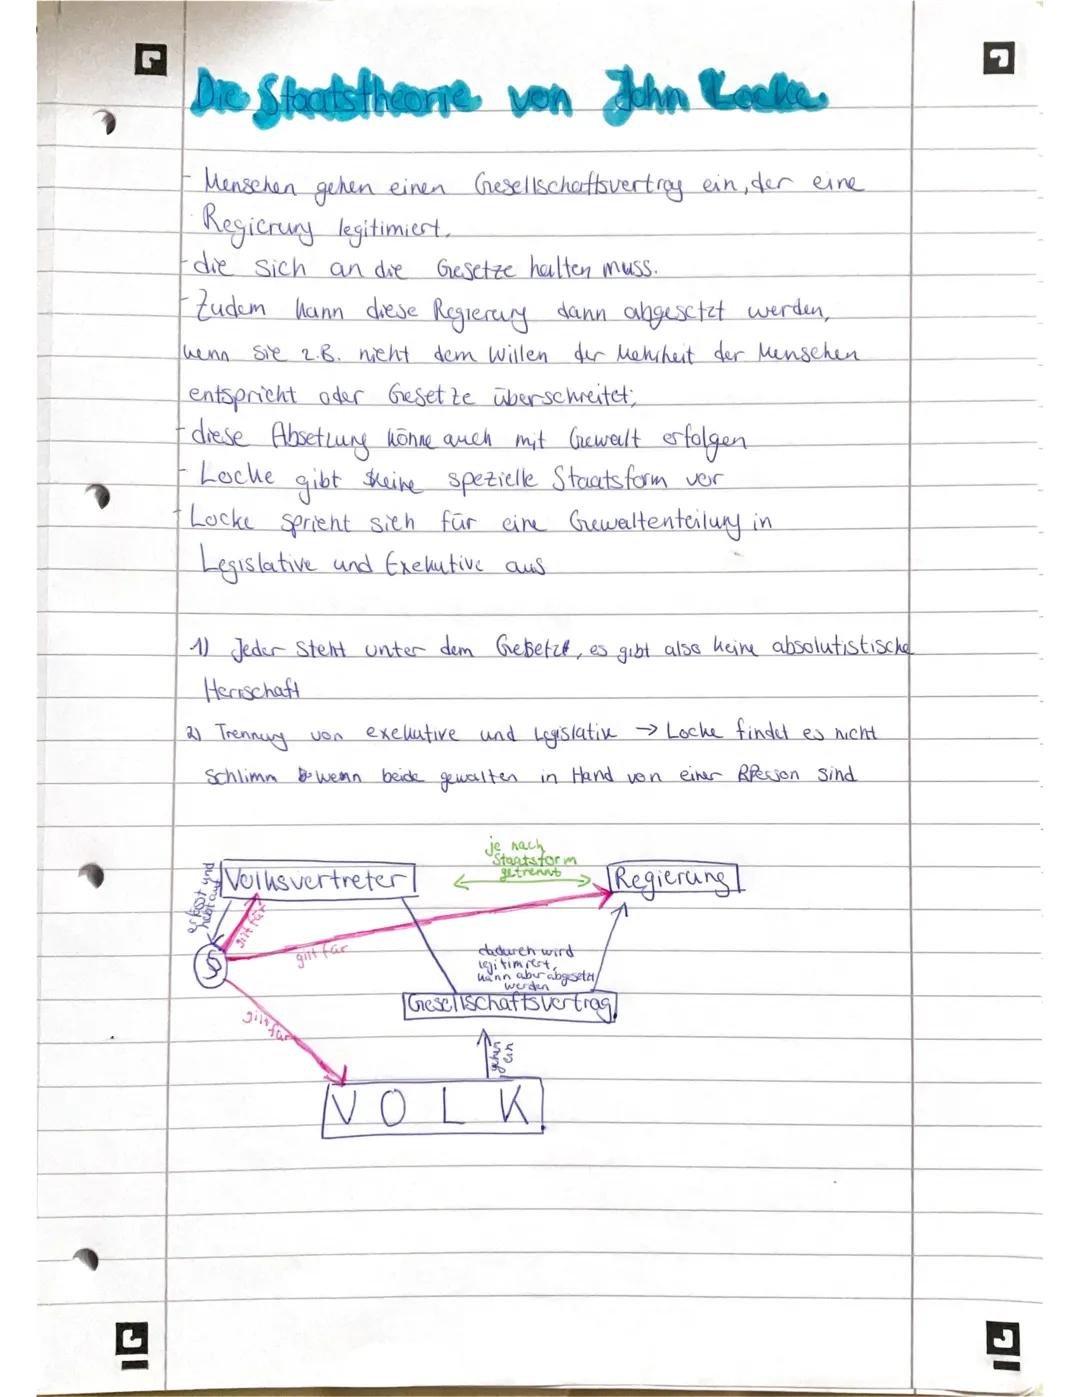 Die Staatstheorie von John Locke
- Menschen gehen einen Gesellschaftsvertrag ein, der eine
Regierung legitimiert,
- die sich an die Gesetze halten muss.
- Zudem kann diese Regierung dann abgesetzt werden,
wenn sie z.B. nicht dem Willen der Mehrheit der Menschen
entspricht oder Gesetze überschreitet;
- diese Absetzung könne auch mit Gewalt erfolgen
- Locke gibt keine spezielle Staatsform vor
- Locke spricht sich für eine Gewaltenteilung in
Legislative und Exekutive aus
1) Jeder steht unter dem Gesetzt, es gibt also keine absolutistische
Herrschaft
2) Trennung von exekutive und Legislative → Locke findet es nicht
schlimm wenn beide gewalten in Hand von einer Person sind
je nach
Staatsform
getrennt
Volksvertreter
Regierung
erlässt und
hebt auf
gilt für
§
gilt für
dadurch wird
legitimiert,
kann aber abgesetzt
werden
Gesellschaftsvertrag
gilt für
gehen
ein
VOLK